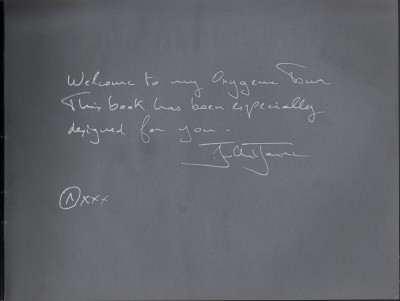 Welcome to my Oxygene Tour
This book has been especially
designed for you.
Ⓝxxx